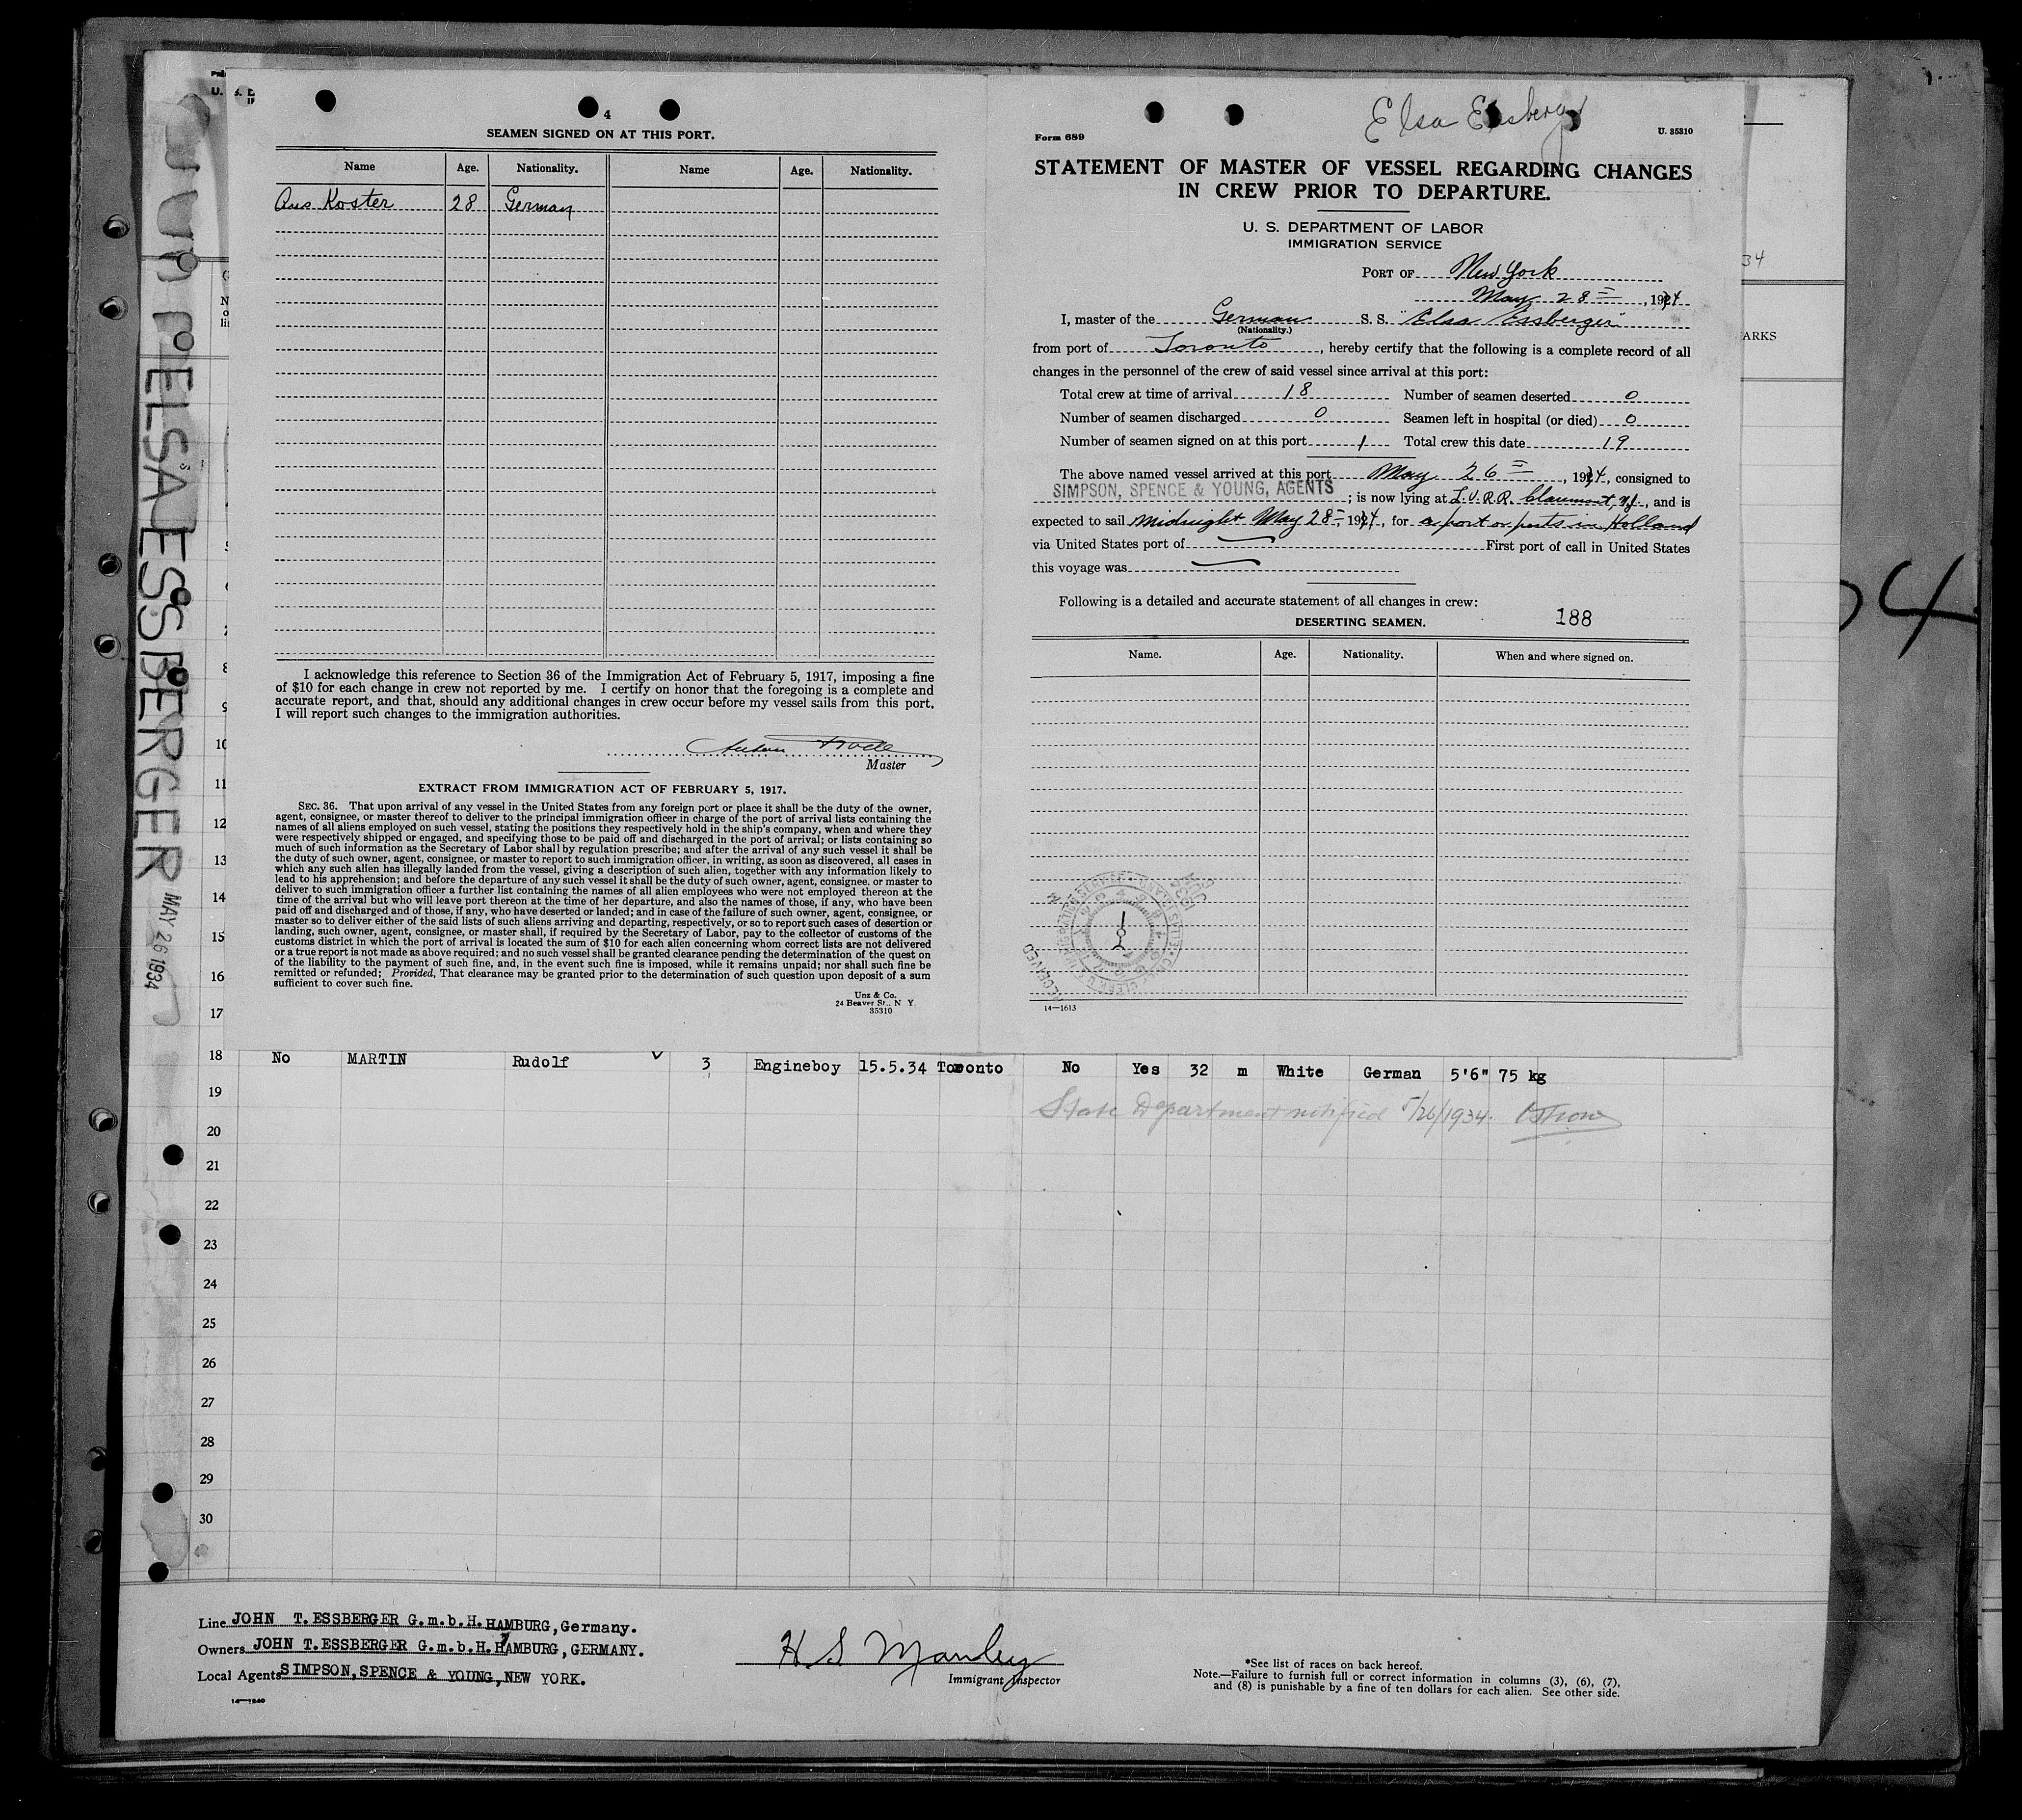 4
SEAMEN SIGNED ON AT THIS PORT.
Name Age. Nationality. Name Age. Nationality.
Koster 28 German
I acknowledge this reference to Section 36 of the Immigration Act of February 5, 1917, imposing a fine
of $10 for each change in crew not reported by me. I certify on honor that the foregoing is a complete and
accurate report, and that, should any additional changes in crew occur before my vessel sails from this port,
I will report such changes to the immigration authorities.
Master
EXTRACT FROM IMMIGRATION ACT OF FEBRUARY 5, 1917.
SEC. 36. That upon arrival of any vessel in the United States from any foreign port or place it shall be the duty of the owner,
agent, consignee, or master thereof to deliver to the principal immigration officer in charge of the port of arrival lists containing the
names of all aliens employed on such vessel, stating the positions they respectively hold in the ship's company, when and where they
were respectively shipped or engaged, and specifying those to be paid off and discharged in the port of arrival; or lists containing so
much of such information as the Secretary of Labor shall by regulation prescribe; and after the arrival of any such vessel it shall be
the duty of such owner, agent, consignee, or master to report to such immigration officer, in writing, as soon as discovered, all cases in
which any such alien has illegally landed from the vessel, giving a description of such alien, together with any information likely to
lead to his apprehension; and before the departure of any such vessel it shall be the duty of such owner, agent, consignee, or master to
deliver to such immigration officer a further list containing the names of all alien employees who were not employed thereon at the
time of the arrival but who will leave port thereon at the time of her departure, and also the names of those, if any, who have been
paid off and discharged and of those, if any, who have deserted or landed; and in case of the failure of such owner, agent, consignee, or
master so to deliver either of the said lists of such aliens arriving and departing, respectively, or so to report such cases of desertion or
landing, such owner, agent, consignee, or master shall, if required by the Secretary of Labor, pay to the collector of customs of the
customs district in which the port of arrival is located the sum of $10 for each alien concerning whom correct lists are not delivered
or a true report is not made as above required; and no such vessel shall be granted clearance pending the determination of the quest on
of the liability to the payment of such fine, and, in the event such fine is imposed, while it remains unpaid; nor shall such fine be
remitted or refunded; Provided, That clearance may be granted prior to the determination of such question upon deposit of a sum
sufficient to cover such fine.
Unz & Co.
24 Beaver St., N Y.
35310
Elsa Essberger
Form 689 U. 35310
STATEMENT OF MASTER OF VESSEL REGARDING CHANGES
IN CREW PRIOR TO DEPARTURE.
U. S. DEPARTMENT OF LABOR
IMMIGRATION SERVICE
PORT OF New York
May 28, 1934
I, master of the German S. S. "Elsa Essberger"
(Nationality.)
from port of Toronto, hereby certify that the following is a complete record of all
changes in the personnel of the crew of said vessel since arrival at this port:
Total crew at time of arrival 18 Number of seamen deserted 0
Number of seamen discharged 0 Seamen left in hospital (or died) 0
Number of seamen signed on at this port 1 Total crew this date 19
The above named vessel arrived at this port May 26, 1934, consigned to
SIMPSON, SPENCE & YOUNG, AGENTS; is now lying at L.V.R.R. Claremont, N.J., and is
expected to sail Midnight May 28, 1934, for a port or ports in Holland
via United States port of First port of call in United States
this voyage was
Following is a detailed and accurate statement of all changes in crew:
DESERTING SEAMEN. 188
Name. Age. Nationality. When and where signed on.
RECEIVED
14—1613
ELSA ESSBERGER
MAY 26 1934
34
ARKS
8
9
10
11
12
13
14
15
16
17
18 No MARTIN Rudolf 3 Engineboy 15.5.34 Toronto No Yes 32 m White German 5'6" 75 kg
19 State Department notified 5/26/1934.
20
21
22
23
24
25
26
27
28
29
30
Line JOHN T. ESSBERGER G.m.b.H. HAMBURG, Germany.
Owners JOHN T. ESSBERGER G.m.b.H. HAMBURG, GERMANY.
Local Agents SIMPSON, SPENCE & YOUNG, NEW YORK.
14—1240
H S Manley
Immigrant Inspector
*See list of races on back hereof.
Note.—Failure to furnish full or correct information in columns (3), (6), (7),
and (8) is punishable by a fine of ten dollars for each alien. See other side.